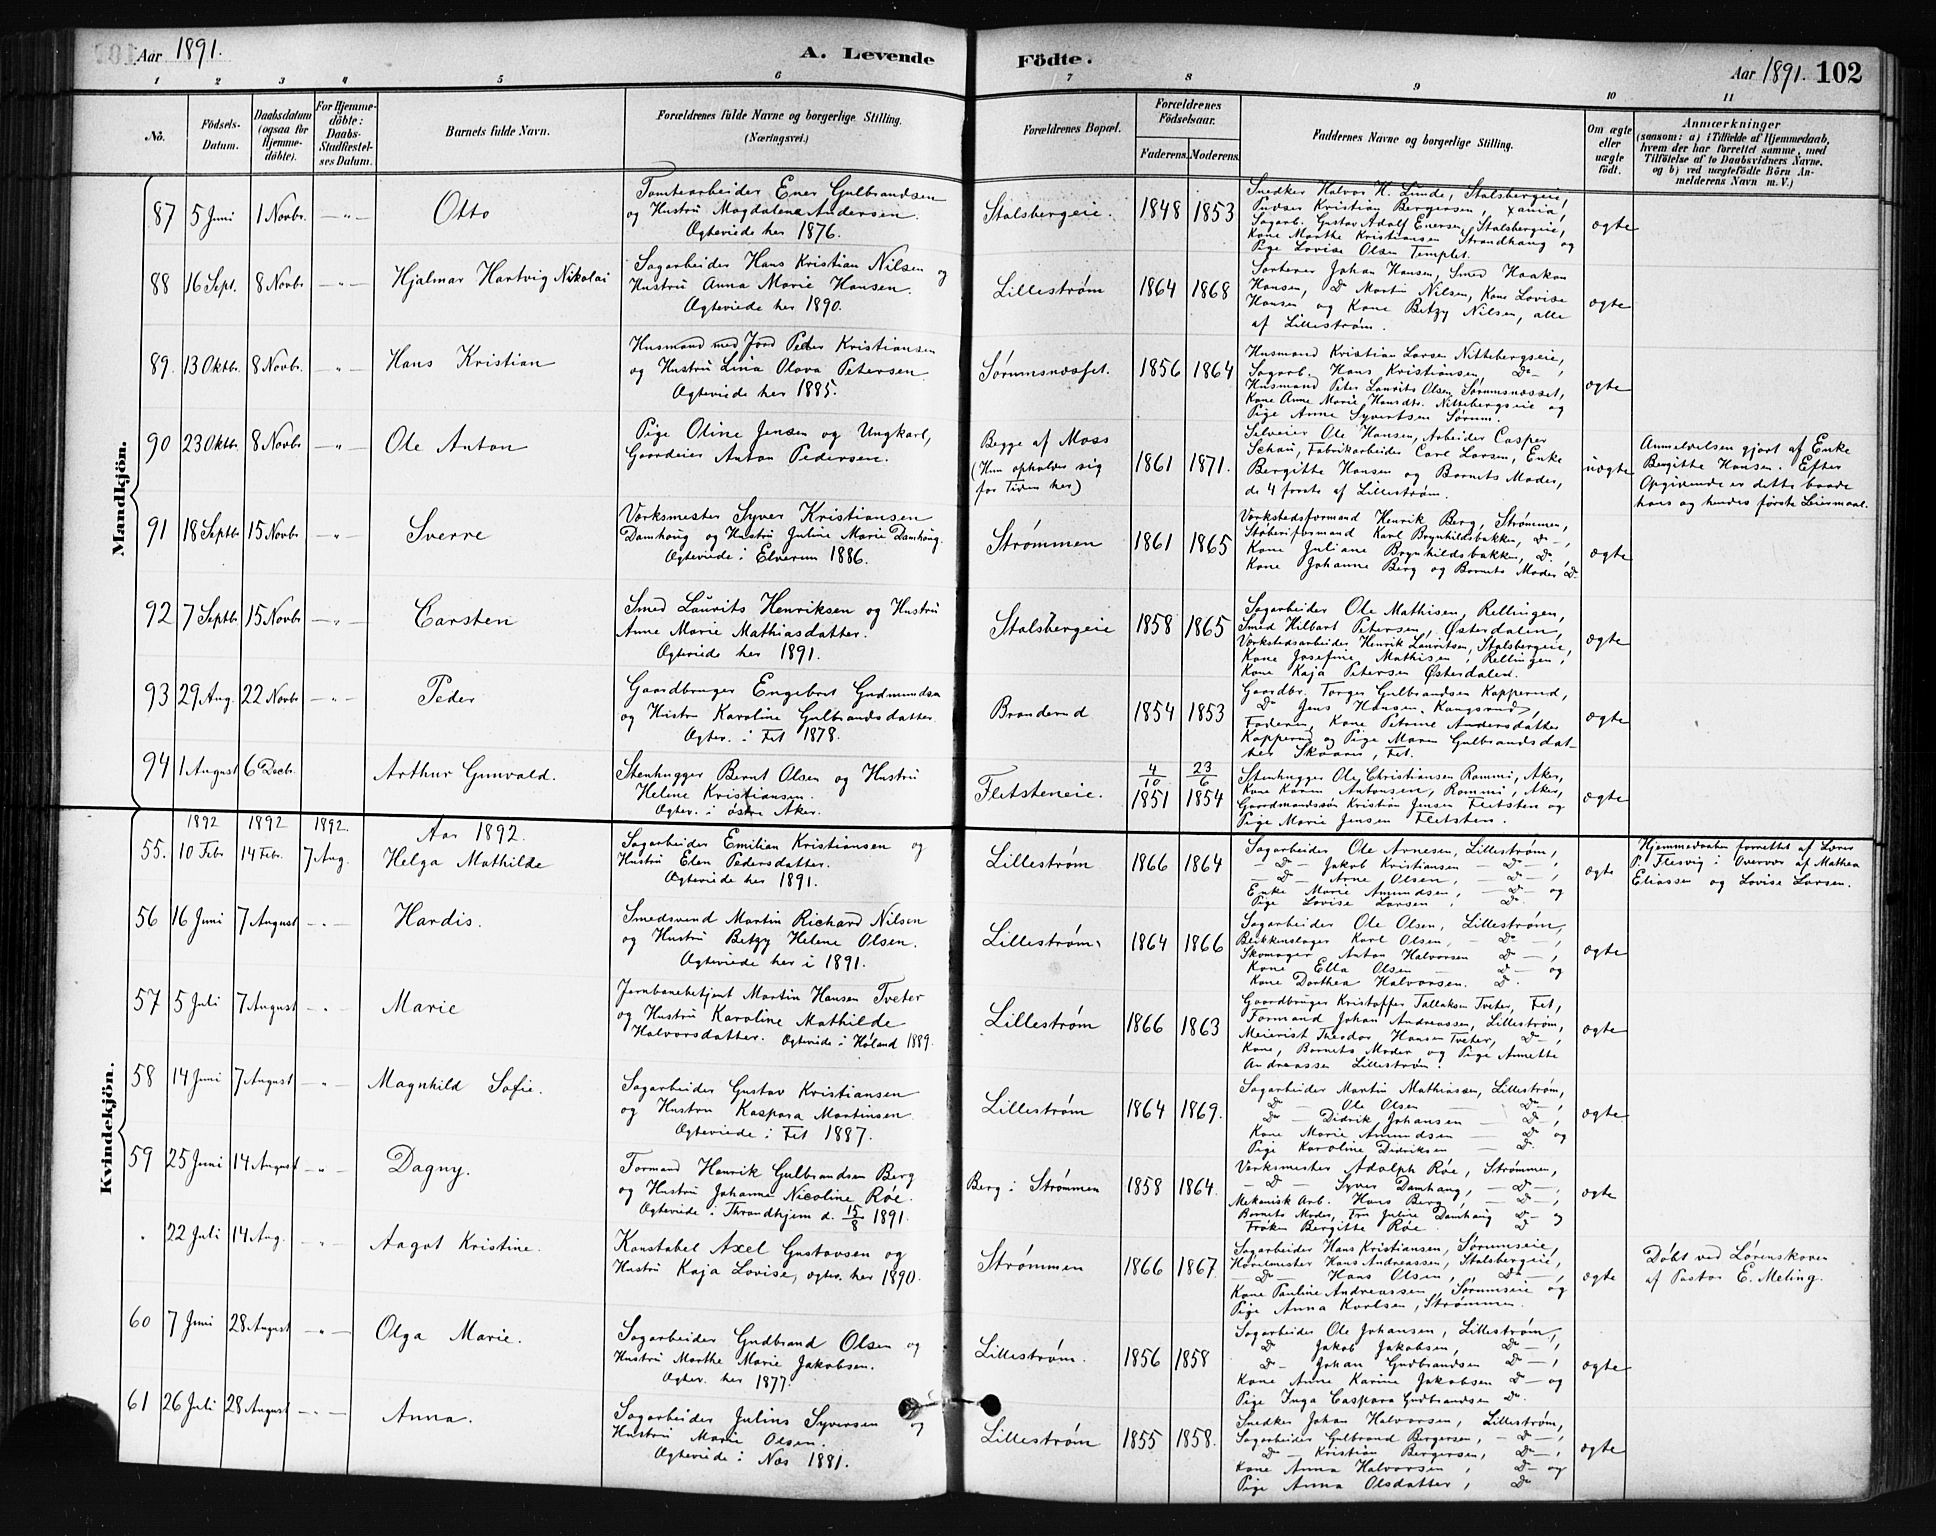 Aar 1891.
A. Levende
Födte.
Aar 1891. 102
1 2 3 4 5 6 7 8 9 10 11
No.
Födsels-
Datum.
Daabsdatum
(ogsaa for
Hjemme-
döbte).
For Hjemme-
döbte:
Daabs-
Stadfæstel-
ses Datum.
Barnets fulde Navn.
Forældrenes fulde Navne og borgerlige Stilling.
(Næringsvei.)
Forældrenes Bopæl.
Forældrenes
Födselsaar.
Faderens. Moderens.
Faddernes Navne og borgerlige Stilling.
Om ægte
eller
uægte
födt.
Anmærkninger
(saasom: a) i Tilfælde af Hjemmedaab,
hvem der har forrettet samme, med
Tilföielse af to Daabsvidners Navne,
og b) ved uægtefödte Börn An-
melderens Navn m. V.)
Mandkjön.
87 5 Juni 1 Novbr. — " — Otto
Tomtearbeider Ener Gulbrandsen
og Hustru Magdalena Andersen.
Ægteviede her 1876.
Stalsbergeie. 1848 1853
Snedker Halvor H. Lunde, Stalsbergeie,
Pudser Kristian Bergersen, Xania,
Sagarb. Gustav Adolf Enersen, Stalsbergeie,
Kone Marthe Kristiansen Strandhaug og
Pige Lovise Olsen Templet.
ægte
88 16 Sept. 8 Novbr — " — Hjalmar Hartvig Nikolai
Sagarbeider Hans Kristian Nilsen og
Hustru Anna Marie Hansen.
Ægteviede her 1890.
Lillestrøm 1864 1868
Sorterer Johan Hansen, Smed Haakon
Hansen, Do Martin Nilsen, Kone Lovise
Hansen og Kone Betzy Nilsen, alle
af Lillestrøm.
ægte
89. 13 Oktbr. 8 Novbr. — " — Hans Kristian
Husmand med Jord Peder Kristiansen
og Hustru Lina Olava Petersen.
Ægteviede her 1885.
Sørumsnæsset. 1856 1864
Husmand Kristian Larsen Nittebergseie,
Sagarb. Hans Kristiansen, Do — ,
Husmand Peter Laurits Olsen Sørumsnæsset,
Kone Anne Marie Hansdtr. Nittebergseie og
Pige Anne Syvertsen Sørum.
ægte
90 23 Oktbr. 8 Novbr. — " — Ole Anton
Pige Oline Jensen og Ungkarl,
Gaardeier Anton Pedersen.
Begge af Moss
(Hun opholder sig
for Tiden her)
1861 1871.
Selveier Ole Hansen, Arbeider Casper
Schau, Fabrikarbeider Carl Larsen, Enke
Bergitte Hansen og Barnets Moder,
de 4 første af Lillestrøm.
uægte
Anmeldelsen gjort af Enke
Bergitte Hansen. Efter
Opgivende er dette baade
hans og hendes første Leiermaal.
91 18 Septbr 15 Novbr — " — Sverre
Værksmester Syver Kristiansen
Damhaug og Hustru Juline Marie Damhaug.
Ægteviede i Elverum 1886.
Strømmen 1861 1865
Værkstedsformand Henrik Berg, Strømmen,
Støberiformand Karl Brynhildsbakken, Do — ,
Kone Juliane Brynhildsbakken, Do. ,
Kone Johanne Berg og Barnets Moder Do
ægte
92 7 Septbr 15 Novbr — " — Carsten
Smed Laurits Henriksen og Hustru
Anne Marie Mathiasdatter.
Ægteviede her 1891.
Stalsbergeie 1858 1865
Sagarbeider Ole Mathisen, Rellingen,
Smed Hilbart Petersen, Østerdalen,
Værkstedsarbeider Henrik Lauritsen, Stalsbergeie,
Kone Josefine Mathisen, Rellingen,
Kone Kaja Petersen Østerdalen.
ægte
93 29 Aug. 22 Novbr — " — Peder
Gaardbruger Engebret Gudmundsen
og Hustru Karoline Gulbrandsdatter.
Ægtev. i Fet 1878.
Branderud 1854 1853
Gaardbr. Torger Gulbrandsen Kopperud,
Do Jens Hansen Kangsrud,
Faderen, Kone Petrine Andersdatter
Kopperud og Pige Maren Gulbrandsdat-
ter Skaara, Fet.
ægte
94 1 August 6 Decbr. Arthur Gunvald.
Stenhugger Bernt Olsen og Hustru
Helene Kristiansen.
Ægtev. i østre Aker.
Fletsteneie. 4/10 1851 23/6 1854
Stenhugger Ole Christiansen Rommi, Aker,
Kone Karen Antonsen, Rommi, Aker,
Gaardmandssøn Kristian Jensen Fletsten og
Pige Marie Jensen Fletsten.
ægte
Kvindekjön.
1892 1892 1892. Aar 1892.
55. 10 Febr 14 Febr. 7 Aug. Helga Mathilde
Sagarbeider Emilian Kristiansen og
Hustru Elen Pedersdatter.
Ægteviede her 1891.
Lillestrøm 1866 1864
Sagarbeider Ole Arnesen, Lillestrøm,
— Do — Jakob Kristiansen — Do — ,
— Do — Arne Olsen, — Do — ,
Enke Marie Amundsen, — Do — og
Pige Lovise Larsen , Do.
ægte
Hjemmedaaben forrettet af Lærer
P. Flesvig i Overvær af Mathea
Eliassen og Lovise Larsen.
56 16 Juni 7 August — " — Hardis.
Smedsvend Martin Richard Nilsen
og Hustru Betzy Helene Olsen.
Ægteviede her i 1891.
Lillestrøm. 1864 1866
Sagarbeider Ole Olsen, Lillestrøm,
Blikkenslager Karl Olsen, — Do — ,
Skomager Anton Halvorsen Do — ,
Kone Ella Olsen — Do — og
Kone Dorthea Halvorsen. Do.
ægte
57 5 Juli 7 August — " — Marie
Jernbanebetjent Martin Hansen Tveter
og Hustru Karoline Mathilde
Halvorsdatter. Ægteviede i Høland 1889.
Lillestrøm 1866 1863
Gaardbruger Kristoffer Tallaksen Tveter, Fet,
Formand Johan Andreassen, Lillestrøm,
Meierist Theodor Hansen Tveter, Do — ,
Kone, Barnets Moder og Pige Annette
Andreassen Lillestrøm.
ægte
58 14 Juni 7 August — " — Magnhild Sofie.
Sagarbeider Gustav Kristiansen
og Hustru Kaspara Martinsen
Ægteviede i Fet 1887.
Lillestrøm 1864 1869.
Sagarbeider Martin Mathiassen, Lillestrøm,
Do — Ole Olsen — Do — ,
Do — Didrik Johansen — Do — ,
Kone Marie Amundsen — Do og
Pige Karoline Didriksen — Do.
ægte
59 25 Juni 14 August — " — Dagny.
Formand Henrik Gulbrandsen Berg
og Hustru Johanna Nicoline Røe.
Ægteviede i Throndhjem d. 15/8 1891.
Berg i Strømmen 1858 1864.
Værksmester Adolph Røe, Strømmen,
— Do — Syver Damhaug, — Do — ,
Mekanisk Arb. Hans Berg, — Do — ,
Barnets Moder, Fru Juline Damhaug Do — og
Frøken Bergitte Røe. Do
ægte
" 22 Juli 14 Aug. — " — Aagot Kristine.
Konstabel Axel Gustavsen og
Hustru Kaja Lovise, ægtev. her 1890.
Strømmen 1866 1867.
Sagarbeider Hans Kristiansen, Sørumseie,
Høvelmester Hans Andreassen, Stalsbergeie,
— Do — Hans Olsen, Do — ,
Kone Pauline Andreassen, Sørumseie og
Pige Anna Karlsen, Strømmen.
ægte
Døbt ved Lørenskoven
af Pastor E. Meling.
60 7 Juni 28 August — " — Olga Marie.
Sagarbeider Gudbrand Olsen og
Hustru Marthe Marie Jakobsen.
Ægtev. her 1877.
Lillestrøm. 1856 1858
Sagarbeider Ole Johansen, Lillestrøm,
Do Jakob Jakobsen, Do — ,
Do — Johan Gudbrandsen Do — ,
Kone Anne Karine Jakobsen Do — og
Pige Inga Caspara Gudbrandsen Do.
ægte
61 26 Juli 28 August — " — Anna.
Sagarbeider Julius Syversen og
Hustru Marie Olsen.
Ægteviede i Næs 1881.
Lillestrøm 1855 1858.
Snedker Johan Halvorsen, Lillestrøm,
Sagarbeider Gulbrand Bergersen, — Do — ,
— Do — Kristian Bergersen, Do — ,
Kone Anna Halvorsen , Do — og
Pige Anna Olsdatter , Do
ægte